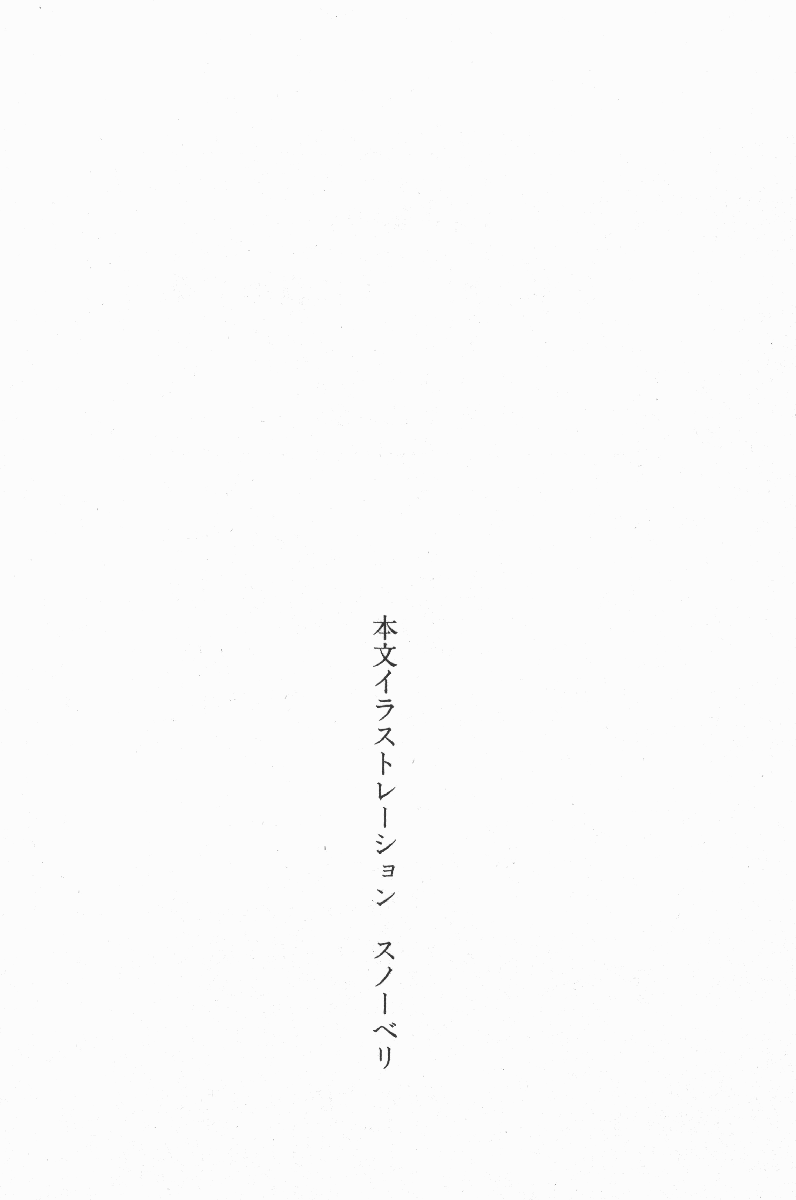 本文イラストレーション　スノーベリ